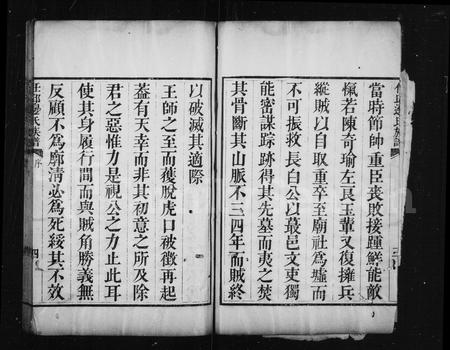 當時節帥重臣喪敗接踵鮮能敵
愾若陳奇瑜左良玉輩又復擁兵
縱賊以自取重卒至廟社為墟而
不可振救長白公以蕞邑文吏獨
能密謀踪跡得其先墓而夷之焚
其骨斷其山脈不三四年而賊終
以破滅其適際
王師之至而獲脫虎口被徵再起
葢有天幸而非其初意之所及除
君之惡惟力是視公之力止此耳
使其身履行間而與賊角勝義無
反顧不為廓清必為死綏其不效
任邱邊氏族譜 序 四